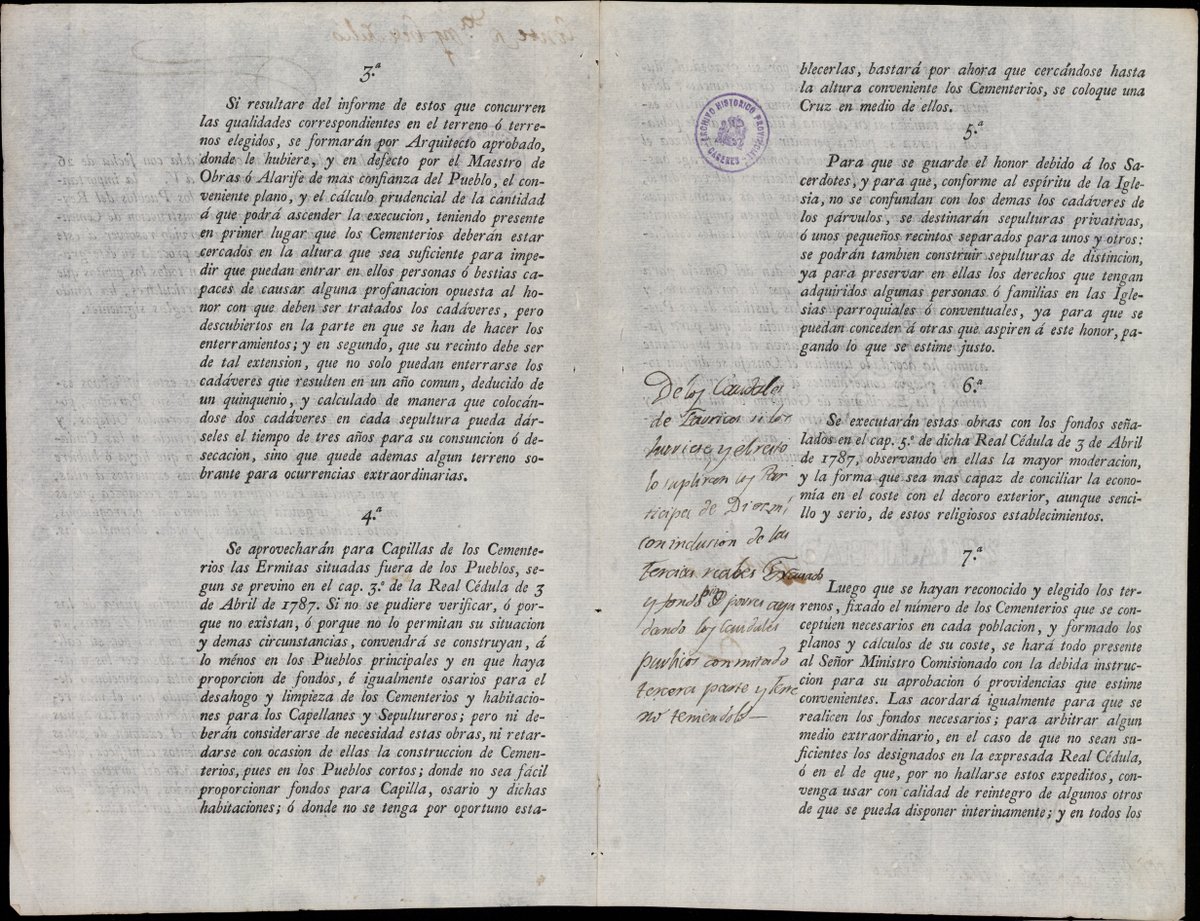 3.ª
Si resultare del informe de estos que concurren
las qualidades correspondientes en el terreno ó terre-
nos elegidos, se formarán por Arquitecto aprobado,
donde le hubiere, y en defecto por el Maestro de
Obras ó Alarife de mas confianza del Pueblo, el con-
veniente plano, y el cálculo prudencial de la cantidad
á que podrá ascender la execucion, teniendo presente
en primer lugar que los Cementerios deberán estar
cercados en la altura que sea suficiente para impe-
dir que puedan entrar en ellos personas ó bestias ca-
paces de causar alguna profanacion opuesta al ho-
nor con que deben ser tratados los cadáveres, pero
descubiertos en la parte en que se han de hacer los
enterramientos; y en segundo, que su recinto debe ser
de tal extension, que no solo puedan enterrarse los
cadáveres que resulten en un año comun, deducido de
un quinquenio, y calculado de manera que colocán-
dose dos cadáveres en cada sepultura pueda dár-
seles el tiempo de tres años para su consuncion ó de-
secacion, sino que quede ademas algun terreno so-
brante para ocurrencias extraordinarias.
4.ª
Se aprovecharán para Capillas de los Cemente-
rios las Ermitas situadas fuera de los Pueblos, se-
gun se previno en el cap. 3.º de la Real Cédula de 3
de Abril de 1787. Si no se pudiere verificar, ó por-
que no existan, ó porque no lo permitan su situacion
y demas circunstancias, convendrá se construyan, á
lo ménos en los Pueblos principales y en que haya
proporcion de fondos, é igualmente osarios para el
desahogo y limpieza de los Cementerios y habitacio-
nes para los Capellanes y Sepultureros; pero ni de-
berán considerarse de necesidad estas obras, ni retar-
darse con ocasion de ellas la construccion de Cemen-
terios, pues en los Pueblos cortos; donde no sea fácil
proporcionar fondos para Capilla, osario y dichas
habitaciones; ó donde no se tenga por oportuno esta-
blecerlas, bastará por ahora que cercándose hasta
la altura conveniente los Cementerios, se coloque una
Cruz en medio de ellos.
ARCHIVO HISTORICO PROVINCIAL
CACERES
5.ª
Para que se guarde el honor debido á los Sa-
cerdotes, y para que, conforme al espíritu de la Igle-
sia, no se confundan con los demas los cadáveres de
los párvulos, se destinarán sepulturas privativas,
ó unos pequeños recintos separados para unos y otros:
se podrán tambien construir sepulturas de distincion,
ya para preservar en ellas los derechos que tengan
adquiridos algunas personas ó familias en las Igle-
sias parroquiales ó conventuales, ya para que se
puedan conceder á otras que aspiren á este honor, pa-
gando lo que se estime justo.
De los Caudales
de Fabricas si los
huviere y el resto
lo supliran los Par
ticipes de Diezm
con inclusion de las
tercias reales Excusado
y fond pio pobres ayu
dando los Caudales
publicos con mitad o
tercera parte y
no teniendolo
6.ª
Se executarán estas obras con los fondos seña-
lados en el cap. 5.º de dicha Real Cédula de 3 de Abril
de 1787, observando en ellas la mayor moderacion,
y la forma que sea mas capaz de conciliar la econo-
mía en el coste con el decoro exterior, aunque senci-
llo y serio, de estos religiosos establecimientos.
7.ª
Luego que se hayan reconocido y elegido los ter-
renos, fixado el número de los Cementerios que se con-
ceptúen necesarios en cada poblacion, y formado los
planos y cálculos de su coste, se hará todo presente
al Señor Ministro Comisionado con la debida instruc-
cion para su aprobacion ó providencias que estime
convenientes. Las acordará igualmente para que se
realicen los fondos necesarios; para arbitrar algun
medio extraordinario, en el caso de que no sean su-
ficientes los designados en la expresada Real Cédula,
ó en el de que, por no hallarse estos expeditos, con-
venga usar con calidad de reintegro de algunos otros
de que se pueda disponer interinamente; y en todos los